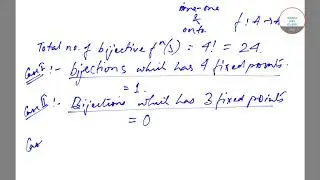 one-one
&
onto
f: A→A
Total no. of bijective fⁿ(s) = 4! = 24.
Case I :- Bijections which has 4 fixed points.
= 1.
Case II :- Bijections which has 3 fixed points
= 0
Cas